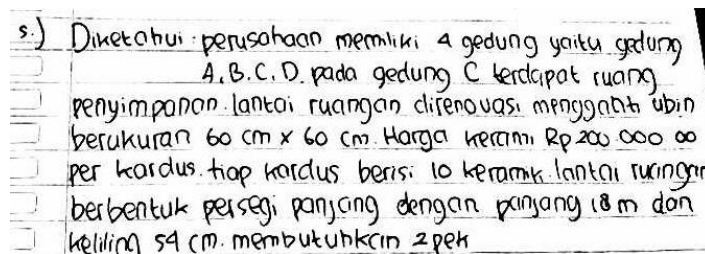 5.) Diketahui: perusahaan memiliki 4 gedung yaitu gedung
A, B, C, D. pada gedung C terdapat ruang
penyimpanan. lantai ruangan direnovasi mengganti ubin
berukuran 60 cm x 60 cm. Harga Rp 200.000 00
per kardus. tiap kardus berisi 10 keramik lantai ruangan
berbentuk persegi panjang dengan panjang 18 m dan
keliling 54 cm. membutuhkan 2 pek